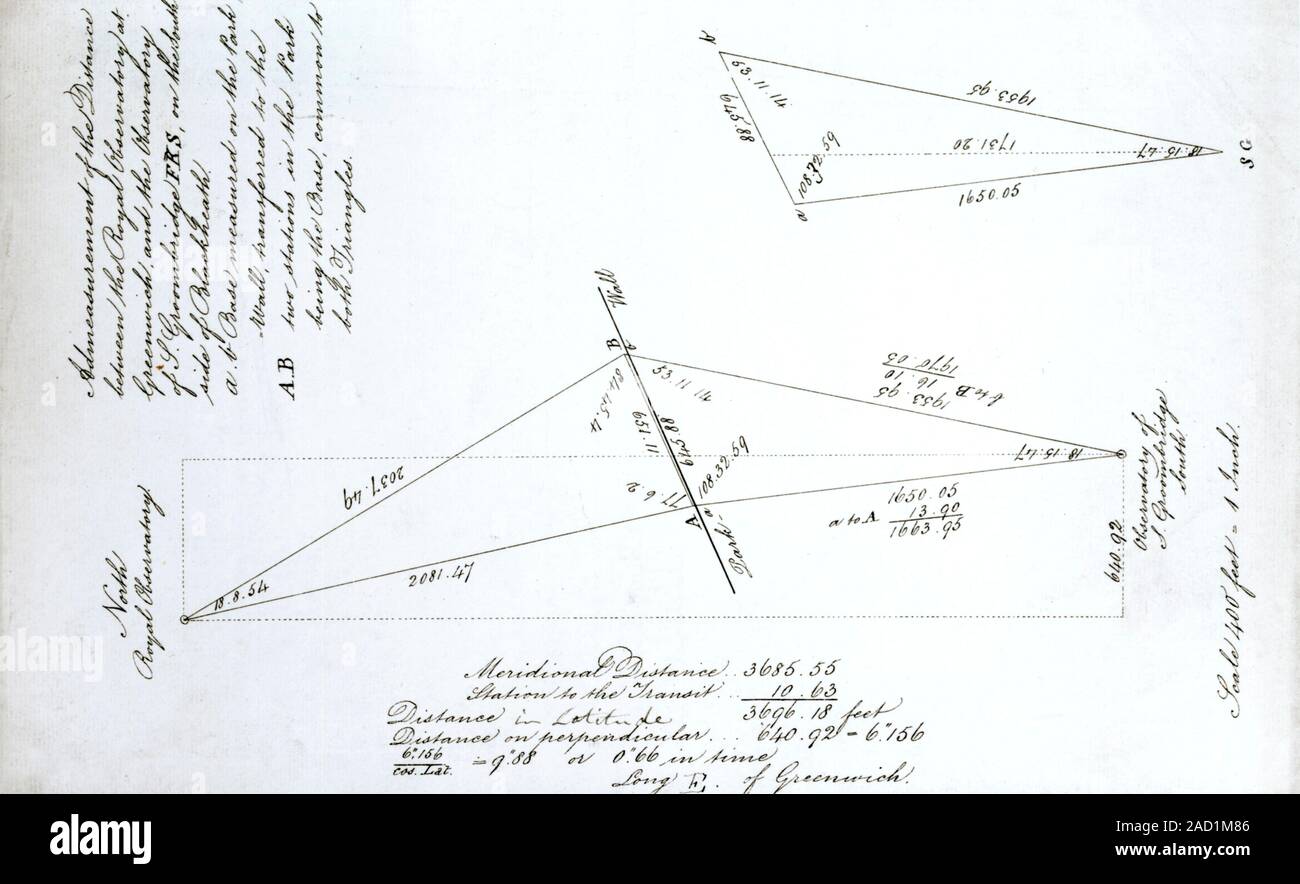 Admeasurement of the Distance
between the Royal Observatory at
Greenwich, and the Observatory
of S. Groombridge F.R.S, on the South
side of BlackHeath.
a.b Base measured on the Park
Wall, transferred to the
A.B two stations in the Park
being the Base, common to
both Triangles.
A
53.11.14
645.88
1953.95
1731.20
108.32.59
18.15.47
a
1650.05
S G
Wall
B
84.45.4
53.11.14
651.11
645.88
1953.95
16.10
1970.05
b to B
2037.49
77.6.2
108.32.59
18.15.47
A
a
Park
1650.05
a to A 13.90
1663.95
2081.47
18.8.54
640.92
North
Royal Observatory
Observatory of
S Groombridge
South
Scale 400 feet = 1 Inch.
Meridional Distance.. 3685.55
Station to the Transit... 10.63
Distance in Latitude 3696.18 feet
Distance on perpendicular... 640.92 = 6."156
6."156
cos. Lat. = 9."88 or 0."66 in time
Long E. of Greenwich.
alamy
Image ID: 2AD1M86
www.alamy.com